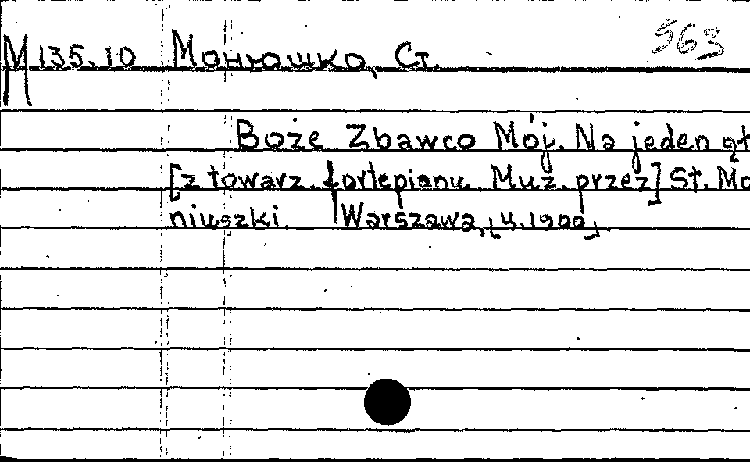 563
М 135.10 Монюшко, Ст.
Boże Zbawco Mój. Na jeden gł
[z towarz. fortepianu. Muz. przez] St. Mo
niuszki. Warszawa, [ч.1900].